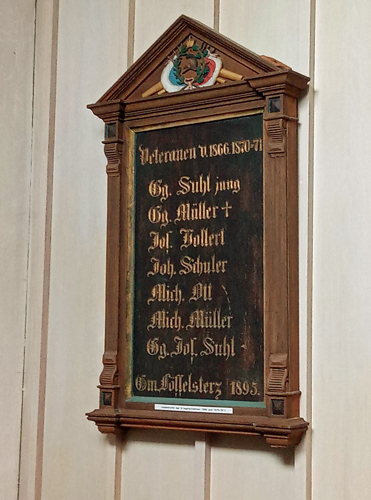 Veteranen v. 1866. 1870-71
Gg. Suhl jung
Gg. Müller +
Jos. Hollerl
Joh. Schuler
Mich. Ott
Mich. Müller
Gg. Jos. Suhl
Gm. Hösselsterz 1895.